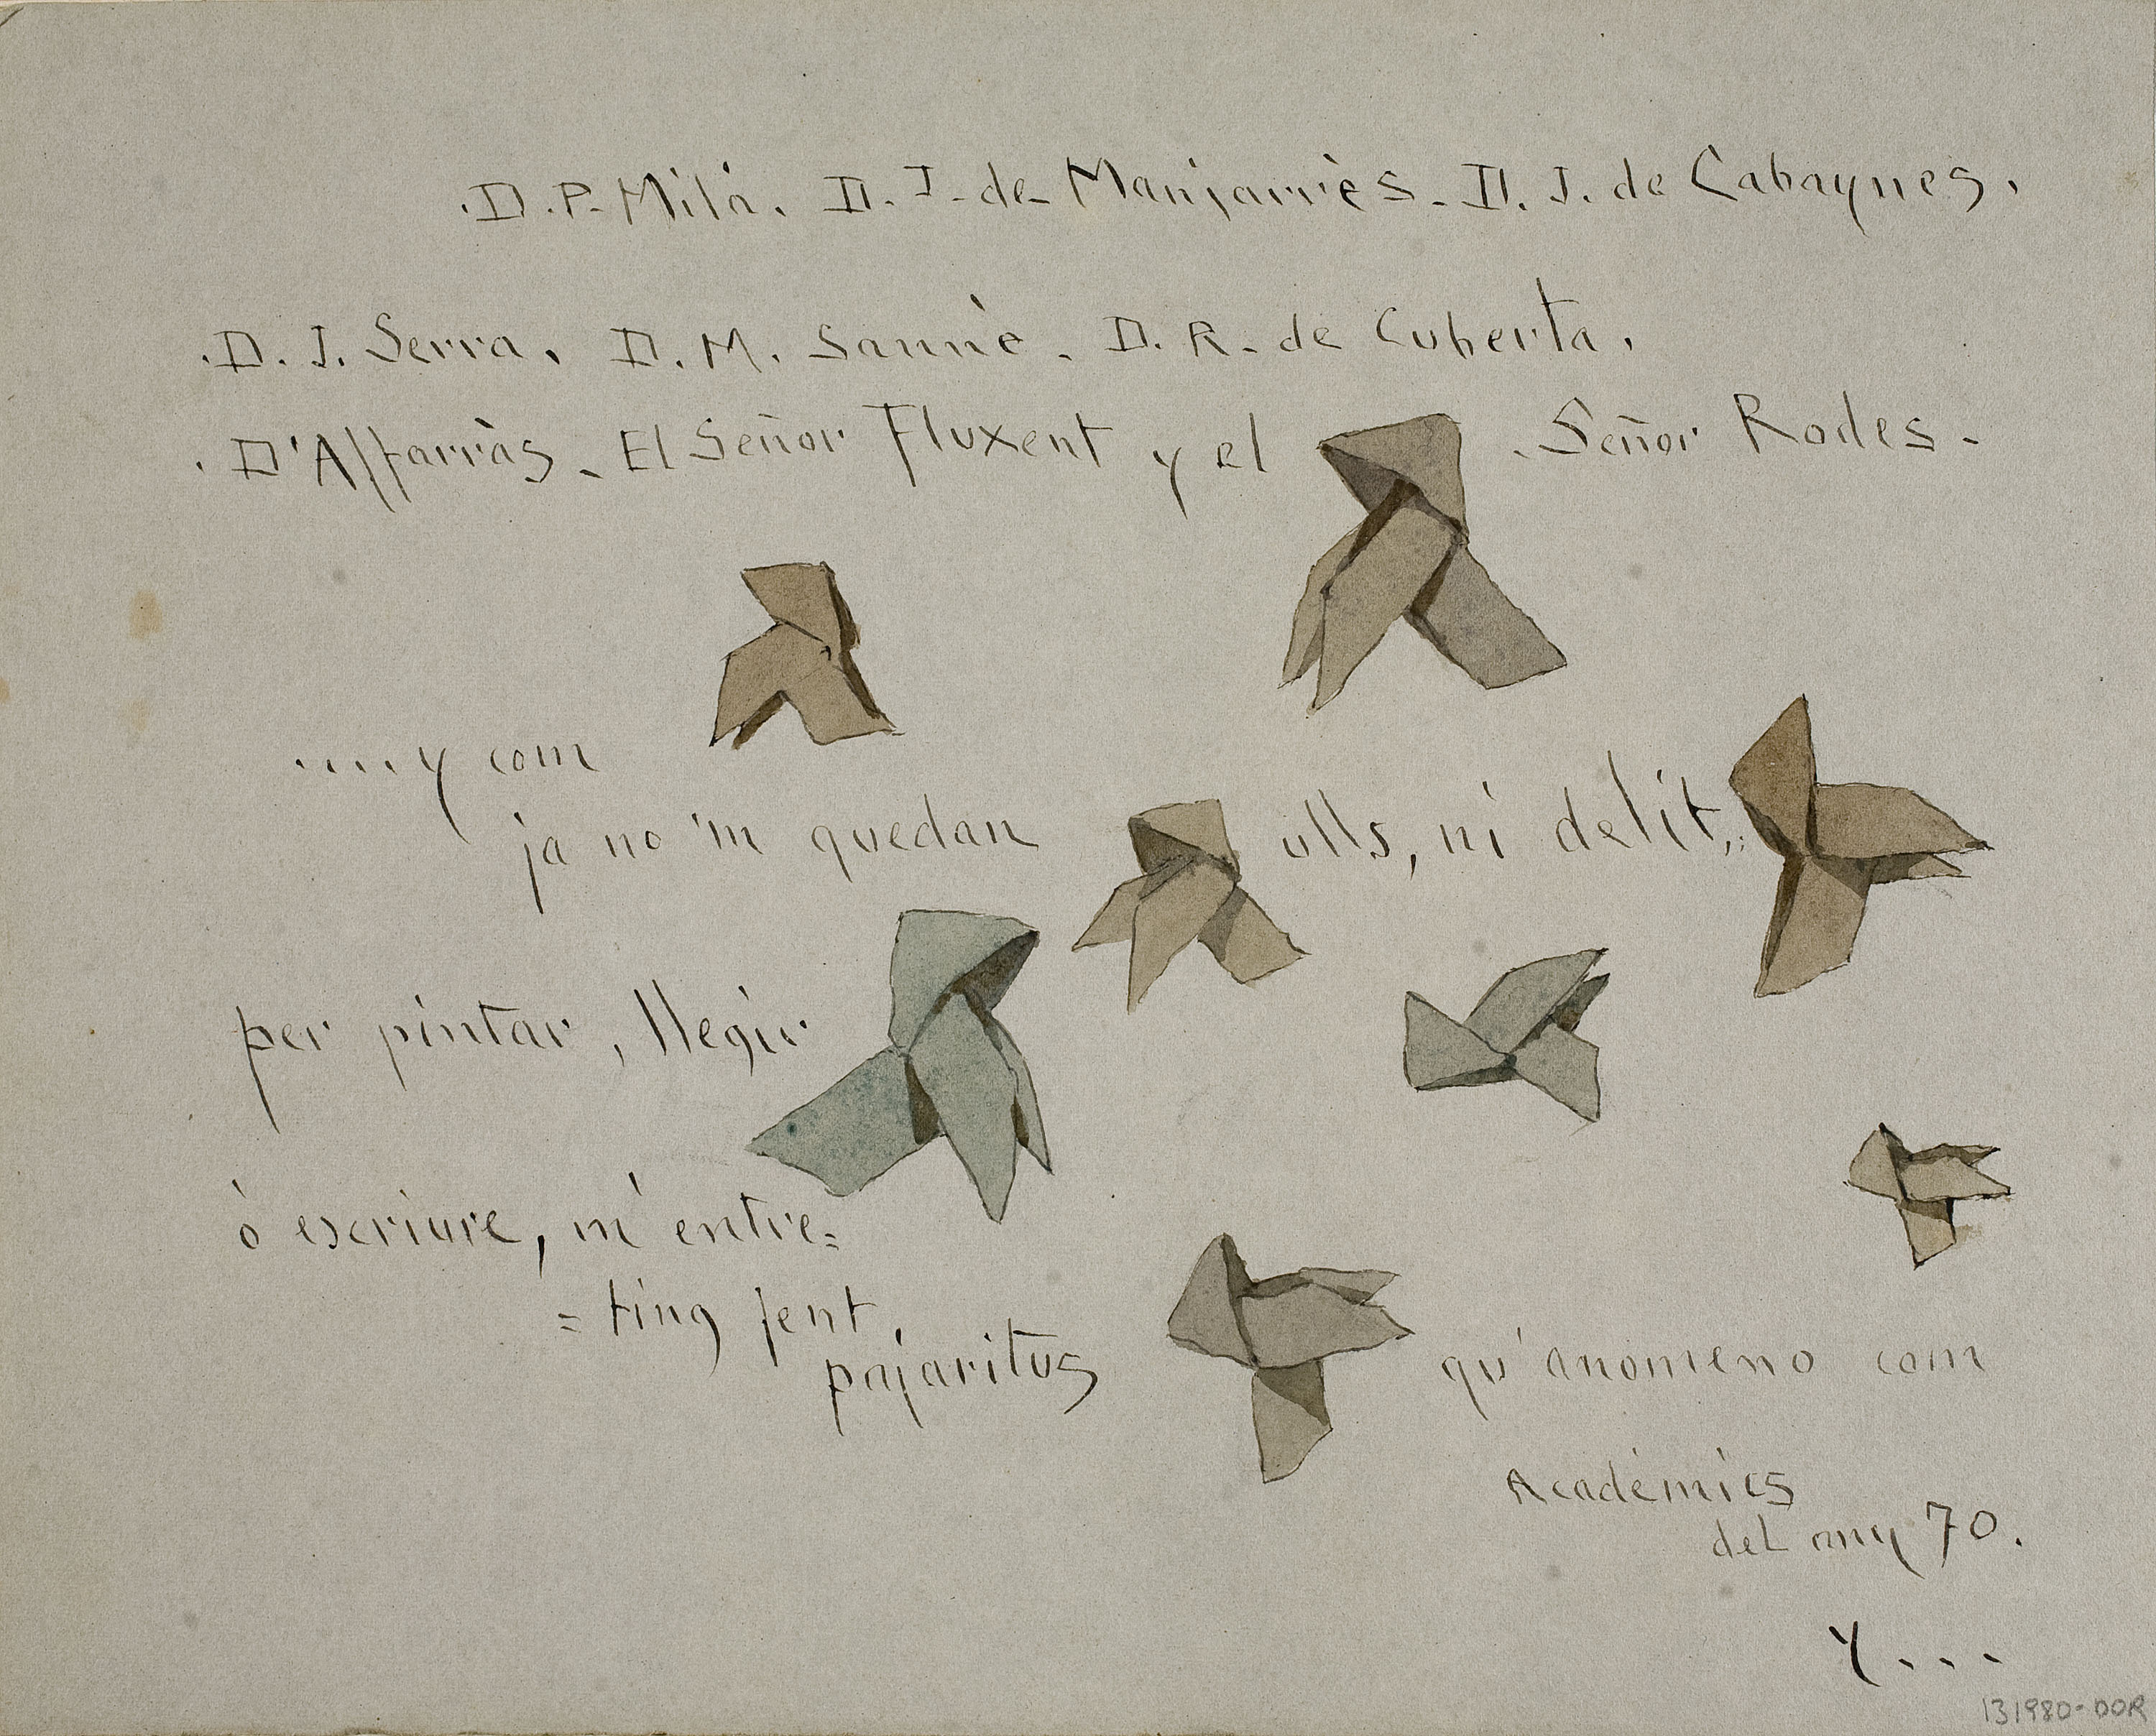 .D.P. Milá. D. J. de Manjarrés. D. J. de Cabaynes.
.D. J. Serra. D. M. Sanné. D. R. de Cuberta.
.D'Alfarràs. El Señor Fluxent y el .Señor Rodes.
....y com
ja no 'm quedan ulls, ni delit,
per pintar, llegir
ò escriure, m' entre=
=ting fent,
pajaritus qu'anomeno com
Académics
del any 70.
Y...
131980-DOR